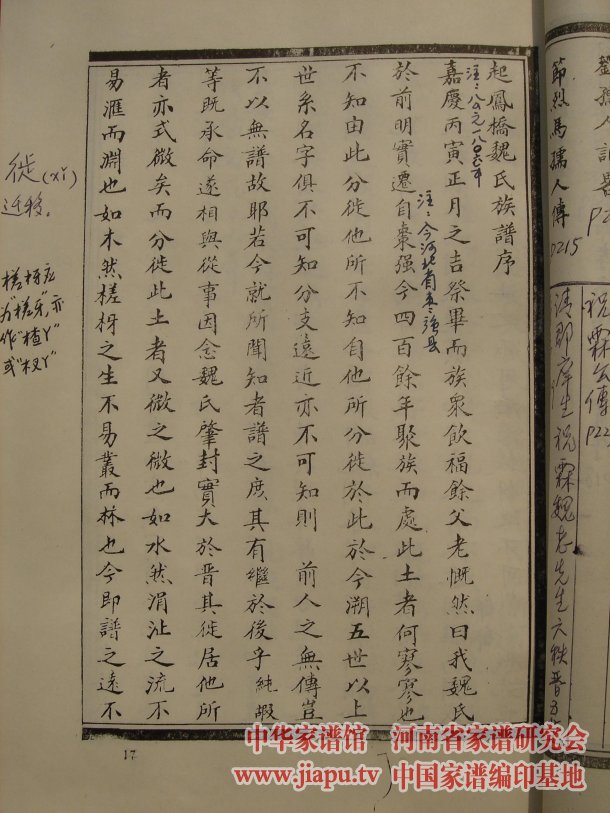 節烈馬孺人傳 P215
祝霖公傳 P22
清郡庠生祝霖魏老先生六秩晋
起鳳橋魏氏族譜序
注：公元一八0六年
嘉慶丙寅正月之吉祭畢而族衆飲福餘父老慨然曰我魏氏
於前明實遷自棗强今四百餘年聚族而處此土者何寥寥也
注：今河北省枣强县
不知由此分徙他所不知自他所分徙於此於今溯五世以上
世系名字俱不可知分支遠近亦不可知則 前人之無傳豈
不以無譜故耶若今就所聞知者譜之庶其有繼於後乎純嘏
等既承命遂相與從事因念魏氏肇封實大於晋其徙居他所
者亦式微矣而分徙此土者又微之微也如水然涓沚之流不
易滙而淵也如木然槎枒之生不易叢而林也今即譜之遠不
徙(xǐ)
迁移。
槎枒应
为"槎牙",亦
作"楂丫"
或"杈丫"
17
中华家谱馆 河南省家谱研究会
www.jiapu.tv 中国家谱编印基地